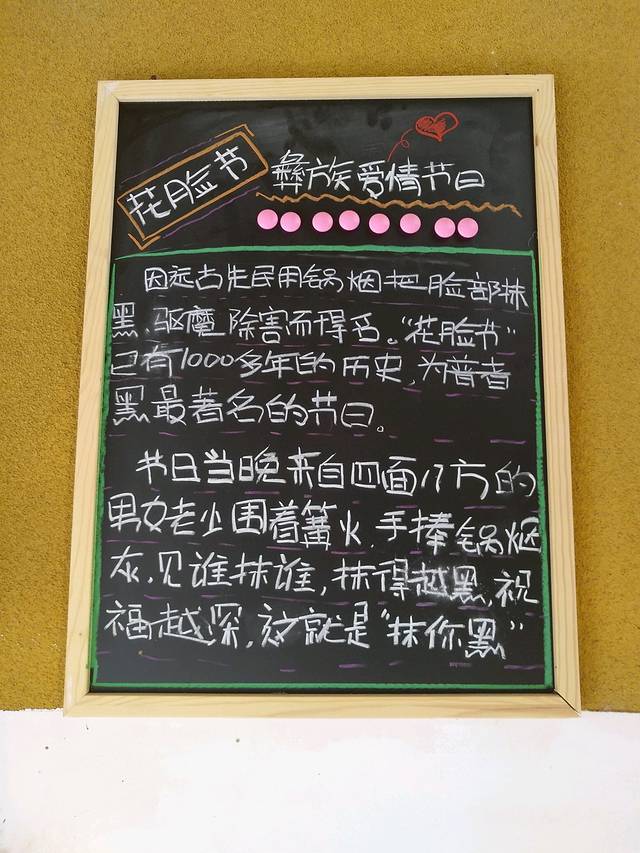 花脸节
彝族爱情节日
因远古先民用锅烟把脸部抹
黑、驱魔除害而得名。“花脸节”
已有1000多年的历史，为普者
黑最著名的节日。
节日当晚来自四面八方的
男女老少围着篝火，手捧锅烟
灰，见谁抹谁，抹得越黑，祝
福越深，这就是“抹你黑”